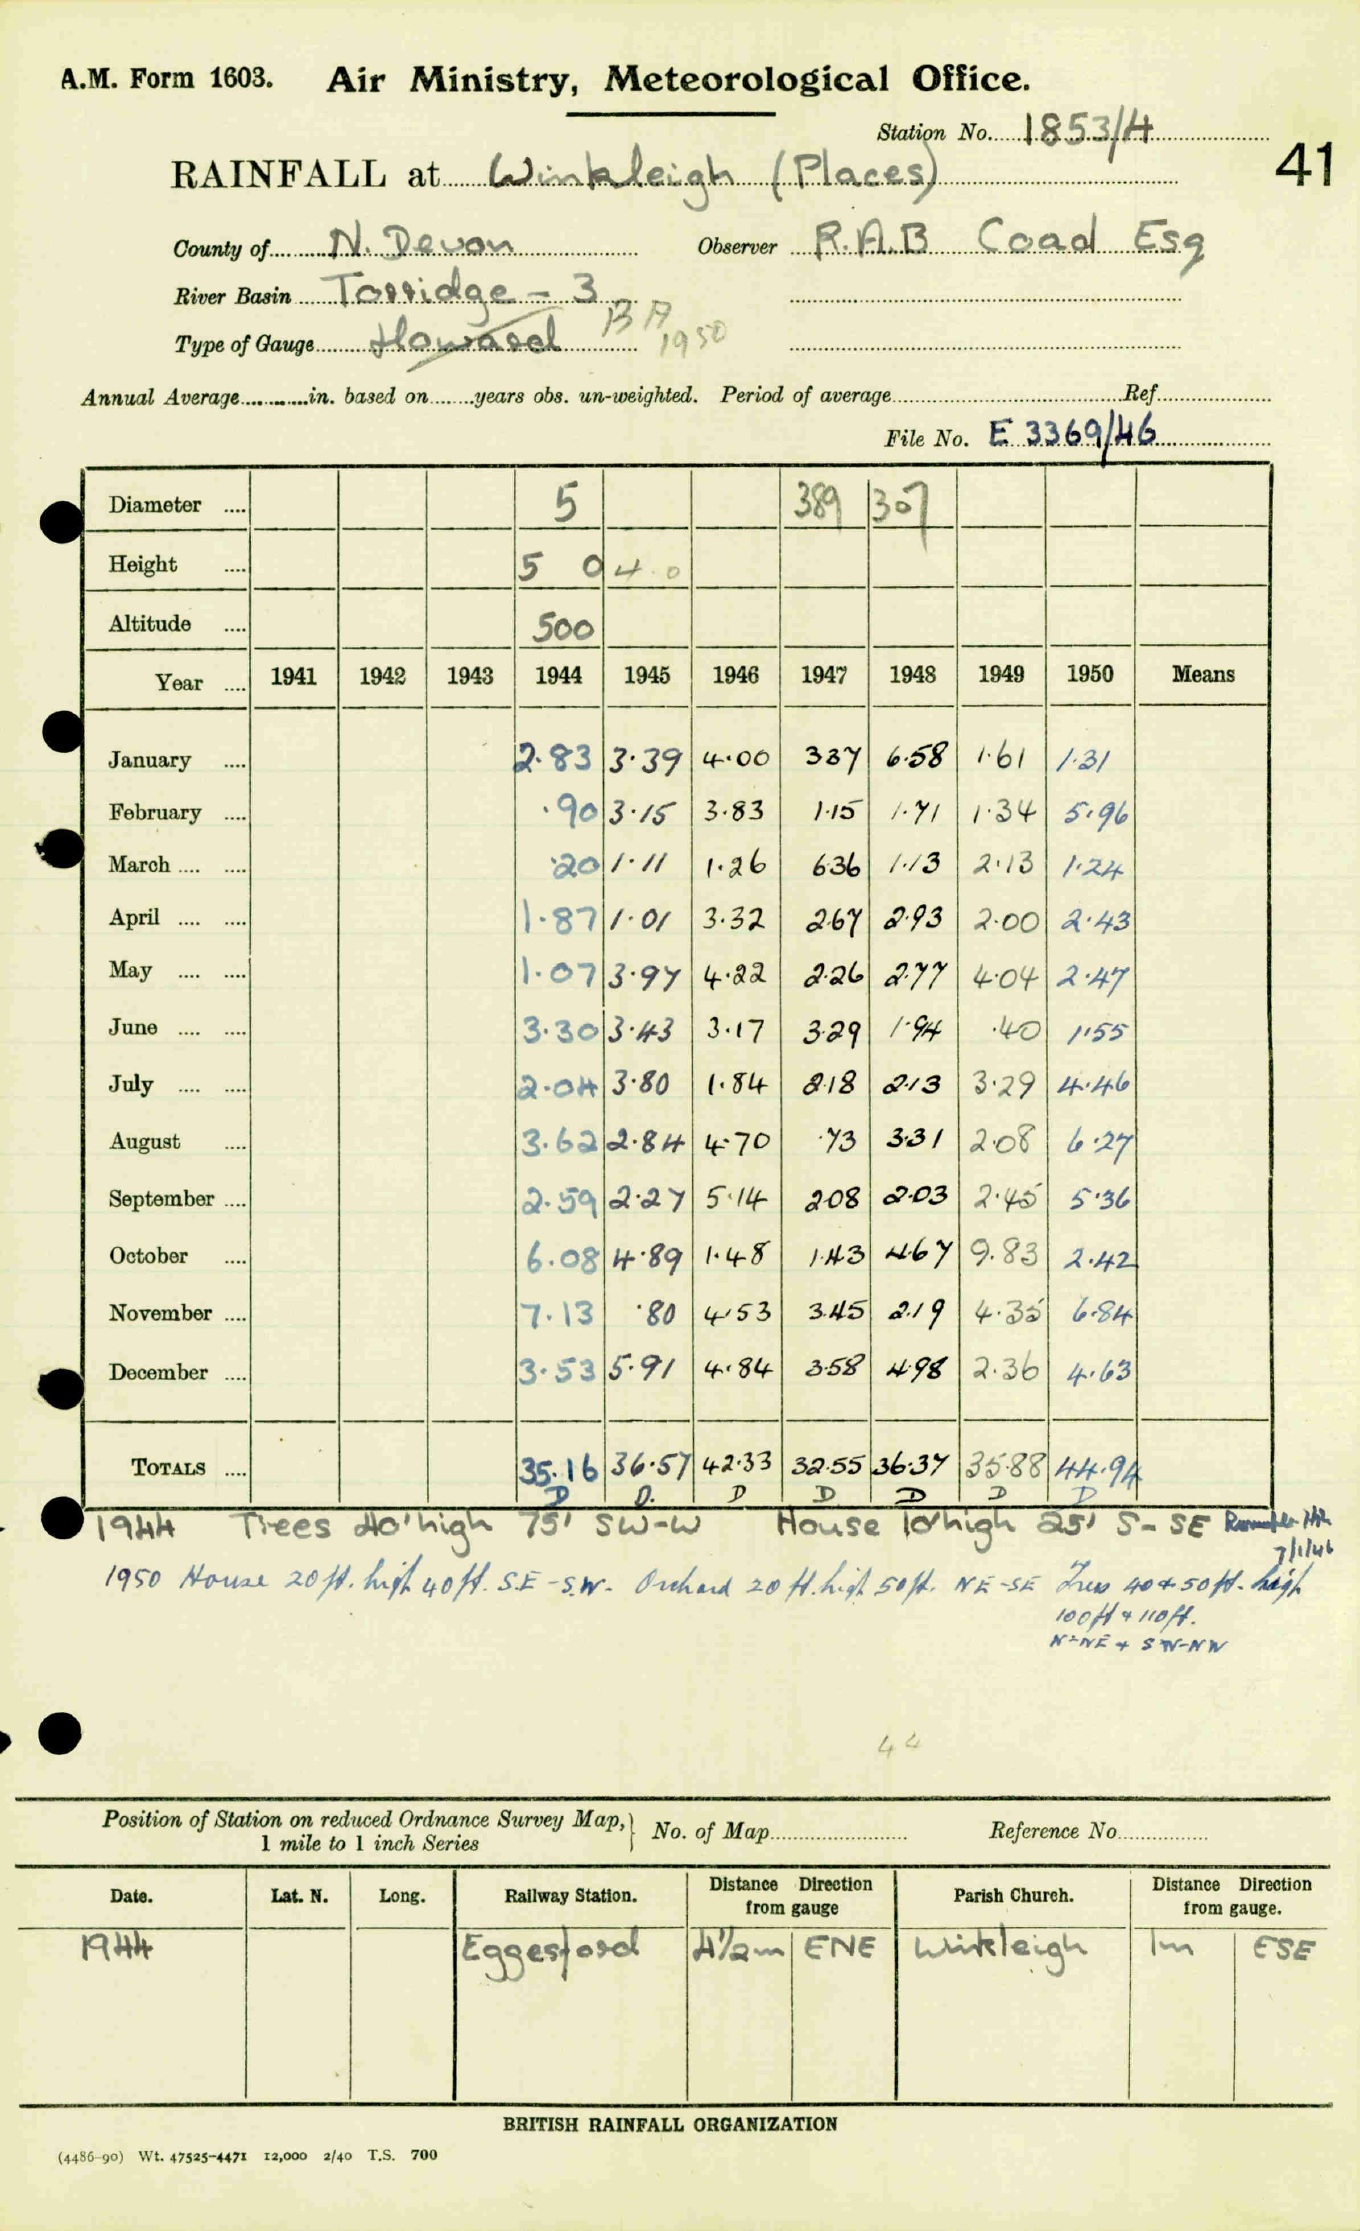 A.M. Form 1603. Air Ministry, Meteorological Office.
Station No. 1853/4
41
RAINFALL at Winkleigh (Places)
County of N. Devon Observer R.A.B Coad Esq
River Basin Torridge - 3
Type of Gauge Howard BA 1950
Annual Average in. based on years obs. un-weighted. Period of average Ref.
File No. E 3369/46
Diameter 5 389 307
Height 5 0 4 0
Altitude 500
Year 1941 1942 1943 1944 1945 1946 1947 1948 1949 1950 Means
January 2.83 3.39 4.00 337 6.58 1.61 1.31
February .90 3.15 3.83 1.15 1.71 1.34 5.96
March .20 1.11 1.26 636 1.13 2.13 1.24
April 1.87 1.01 3.32 267 2.93 2.00 2.43
May 1.07 3.97 4.22 2.26 2.77 4.04 2.47
June 3.30 3.43 3.17 329 1.94 .40 1.55
July 2.04 3.80 1.84 218 2.13 3.29 4.46
August 3.62 2.84 4.70 .73 331 2.08 6.27
September 2.59 2.27 5.14 208 2.03 2.45 5.36
October 6.08 4.89 1.48 1.43 467 9.83 2.42
November 7.13 .80 4.53 3.45 2.19 4.35 6.84
December 3.53 5.91 4.84 358 498 2.36 4.63
TOTALS 35.16 36.57 42.33 32.55 36.37 35.88 44.94
D D. D D D D D
1944 Trees 40' high 75' SW-W House 10' high 25' S-SE
7/1/46
1950 House 20ft. high 40ft. S.E-S.W. Orchard 20ft. high 50ft. NE-SE Trees 40 & 50ft. high
100ft & 110ft.
N-NE + SW-NW
44
Position of Station on reduced Ordnance Survey Map,
1 mile to 1 inch Series
No. of Map Reference No.
Date. Lat. N. Long. Railway Station. Distance Direction from gauge Parish Church. Distance Direction from gauge.
1944 Eggesford 4½m ENE Winkleigh 1m ESE
BRITISH RAINFALL ORGANIZATION
(4486-90) Wt. 47525-4471 12,000 2/40 T.S. 700